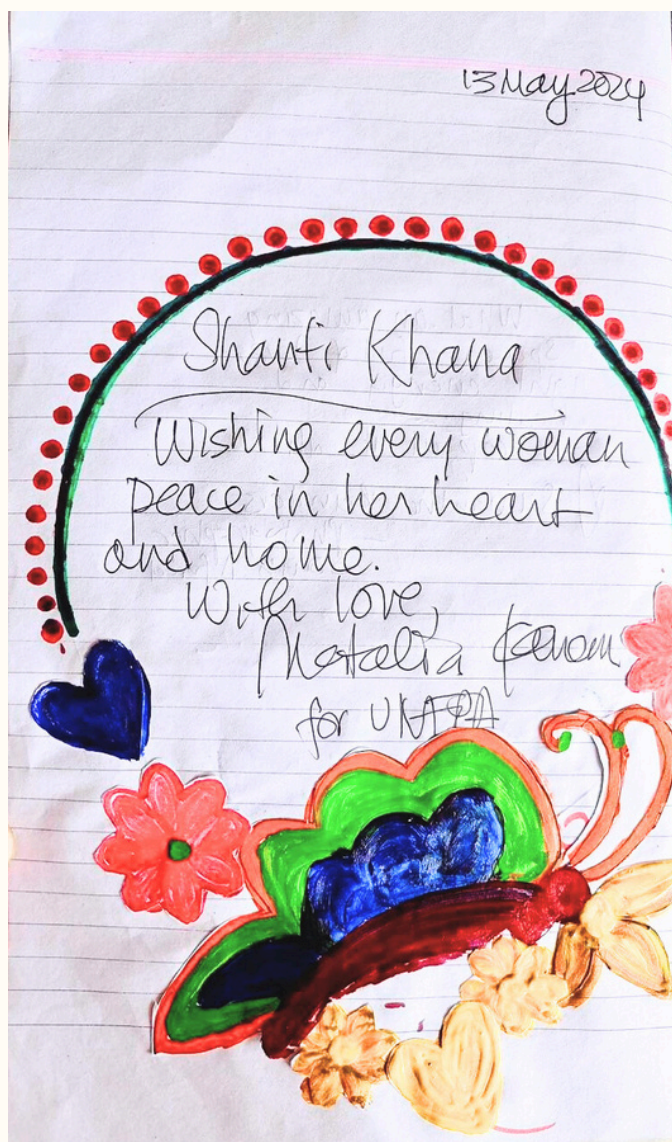 13 May 2024
Shanti Khana
Wishing every woman
peace in her heart
and home.
With love,
Natalia Kanem
for UNFPA